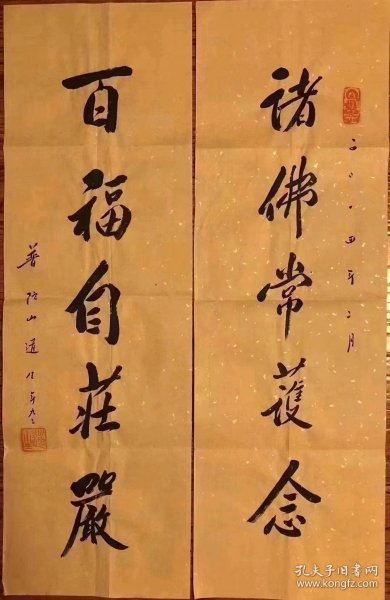 二〇〇四年二月
諸佛常護念
百福自莊嚴
普陀山道
孔夫子旧书网
www.kongfz.com